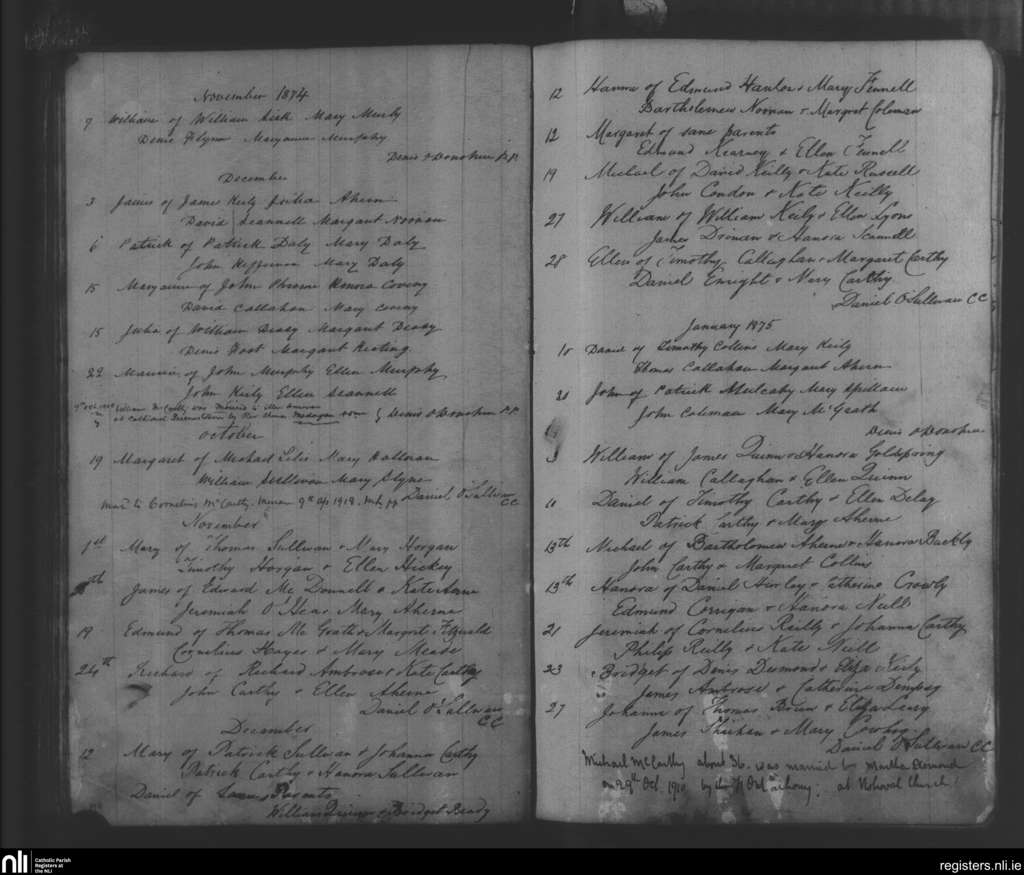 November 1874
7 William of William Kirk Mary
Denis Flynn Maryanne Murphy
Denis O'Donohue P.P.
December
3 James of James Kiely Julia Ahern
David Scannell Margaret Noonan
6 Patrick of Patrick Daly Mary Daly
John Heffernan Mary Daly
15 Maryanne of John Honora
David Callahan Mary
15 Julia of William Margaret
Denis Margaret Keating
22 Maurice of John Murphy Ellen Murphy
John Kiely Ellen Scannell
Denis O'Donohue P.P.
William McCarthy was married to
at Cathedral by Rev
October
19 Margaret of Michael Mary
William Sullivan Mary Slyne
Daniel O'Sullivan CC
Mard to Cornelius McCarthy 9th 1918
November
1st Mary of Thomas Sullivan & Mary Horgan
Timothy Horgan & Ellen Hickey
th James of Edward Mc Donnell & Kate
Jeremiah O'Mary Aherne
19 Edmund of Thomas Mc Grath & Margret Fitzgerald
Cornelius Hayes & Mary Meade
24th Richard of Richard Ambrose & Kate Carthy
John Carthy & Ellen Aherne
Daniel O'Sullivan
CC
December
12 Mary of Patrick Sullivan & Johanna Carthy
Patrick Carthy & Hanora Sullivan
Daniel of Same Parents
William Quinn & Bridget Brady
12 Hanna of Edmund Hanlon & Mary Fennell
Bartholomew Noonan & Margret Coleman
12 Margaret of same parents
Edmund Kearney & Ellen Fennell
19 Michael of David Keilly & Kate Russell
John Condon & Kate Keilly
27 William of William Keily & Ellen Lyons
James & Hanora Scannell
28 Ellen of Timothy Callaghan & Margaret Carthy
Daniel Enright & Mary Carthy
Daniel O'Sullivan CC
January 1875
10 Daniel of Timothy Collins Mary Keily
Thomas Callahan Margaret Ahern
31 John of Patrick Mulcahy Mary Spillane
John Coleman Mary McGrath
Denis O'Donohue
3 William of James Quinn & Hanora Goldspring
William Callaghan & Ellen Quinn
11 Daniel of Timothy Carthy & Ellen Delay
Patrick Carthy & Mary Aherne
13th Michael of Bartholomew Aherne & Hanora Buckly
John Carthy & Margret Collins
13th Hanora of Daniel Hurley & Catherine Crowly
Edmund Corrigan & Hanora Neill
21 Jeremiah of Cornelius Reilly & Johanna Carthy
Philip Reilly & Kate Neill
23 Bridget of Denis Desmond & Eliza Keily
James Ambrose & Catherine Dempsy
27 Johanna of Thomas Brien & Eliza Leary
James Sheehan & Mary
Daniel O'Sullivan CC
Michael McCarthy about 36. was married to Martha Desmond
on 29th Oct. 1910 by the at Nohoval Church
nli
Catholic Parish
Registers at
the NLI
registers.nli.ie